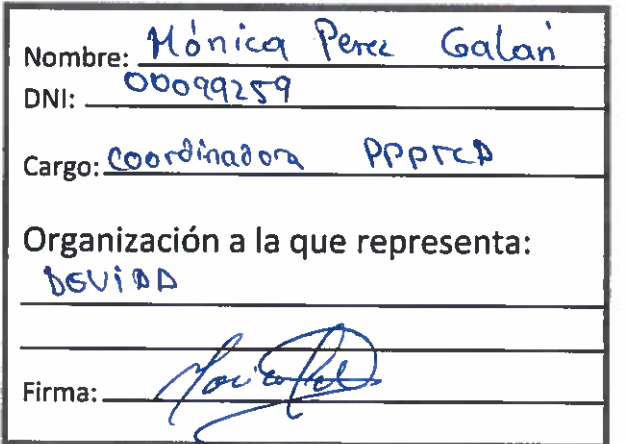 Nombre: Mónica Perez Galan
DNI: 00099259
Cargo: Coordinadora PPPTCD
Organización a la que representa:
DEVIDA
Firma: